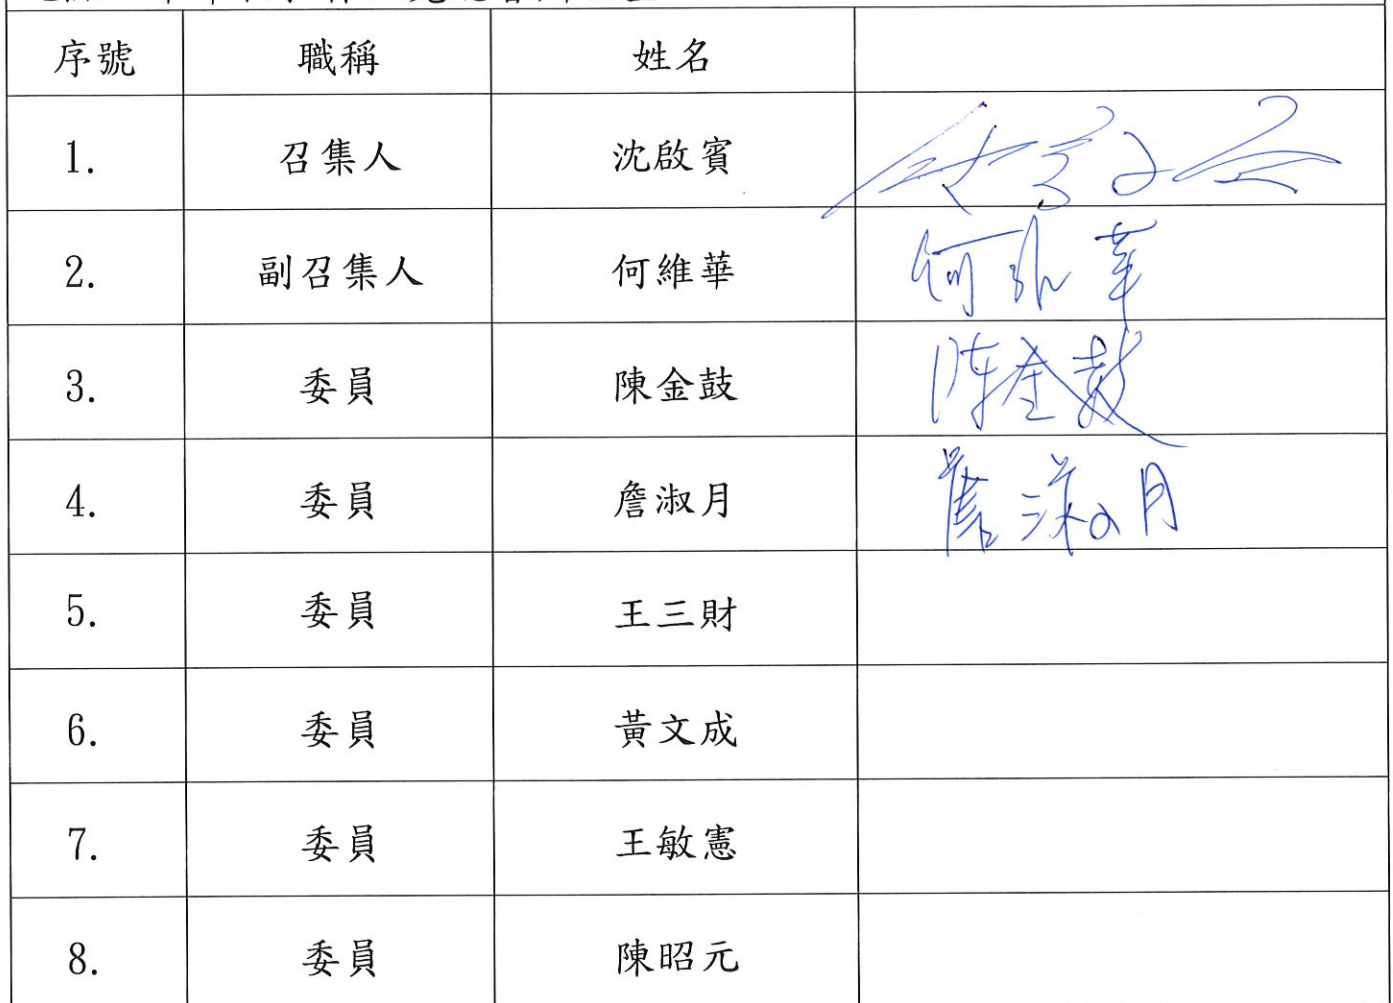 序號 職稱 姓名
1. 召集人 沈啟賓
2. 副召集人 何維華 何維華
3. 委員 陳金鼓 陳金鼓
4. 委員 詹淑月 詹淑月
5. 委員 王三財
6. 委員 黃文成
7. 委員 王敏憲
8. 委員 陳昭元